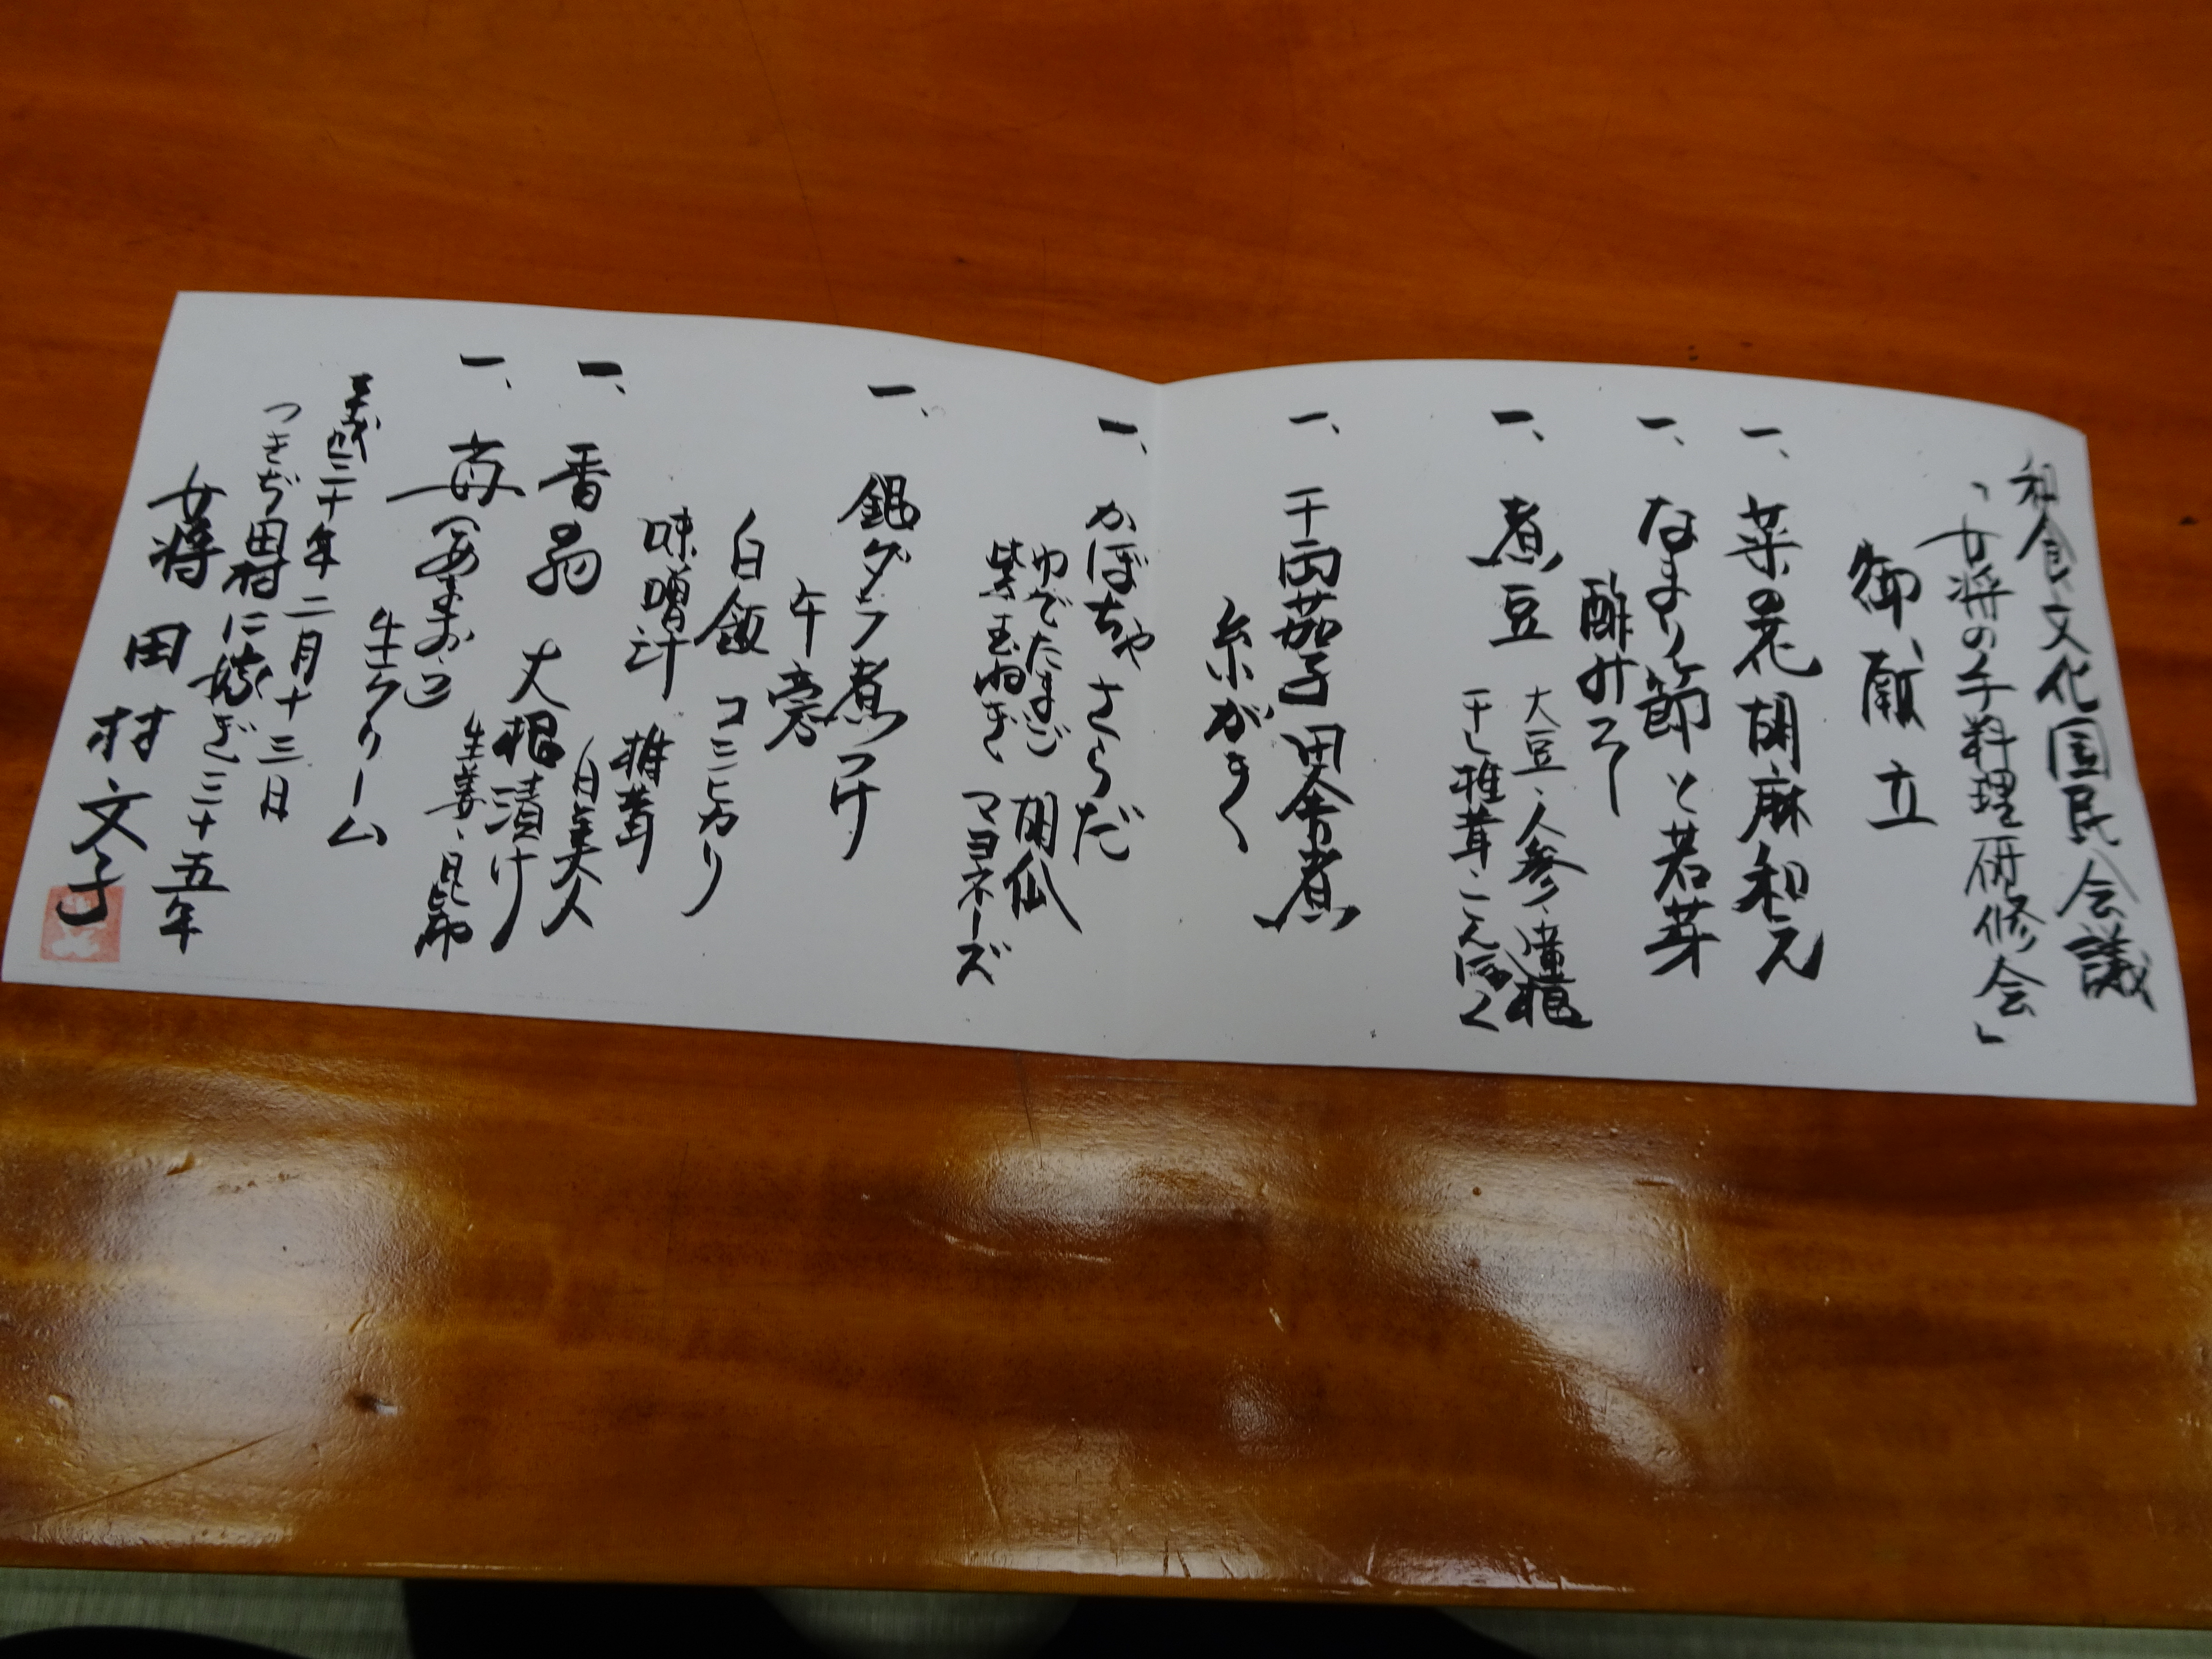 和食文化国民会議
「女将の手料理研修会」
御献立
一、菜の花胡麻和え
一、なまり節と若芽
酢みそ
一、煮豆 大豆、人参、蓮根
干し椎茸、こんにゃく
一、干両茄子田舎煮
糸がき
一、かぼちゃさらだ
ゆでたまご 胡瓜
紫玉ねぎ、マヨネーズ
一、銀ダラ煮つけ
牛蒡
白飯 コシヒカリ
味噌汁 椎茸
一、香物 白美人
大根漬け
生姜、昆布
一、苺(あまおう)
生クリーム
平成三十年二月十三日
つきぢ田村に嫁ぎ三十五年
女将 田村文子